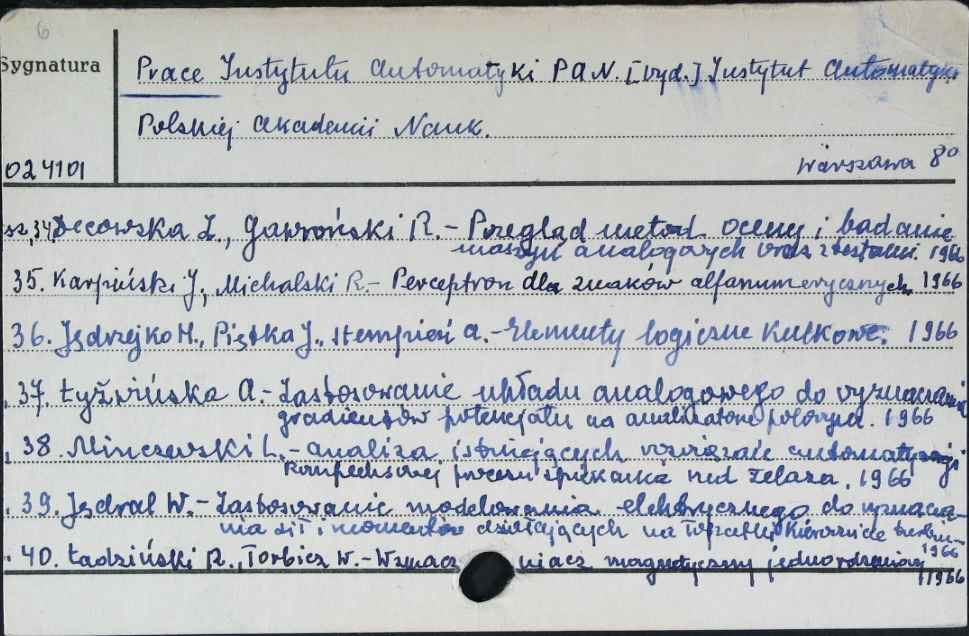 6
Sygnatura
Prace Instytutu Automatyki PAN. [Wyd.] Instytut Automatyki
Polskiej Akademii Nauk.
024101
Warszawa 8°
34, Gawroński R. - Przegląd metod oceny i badanie
maszyn analogowych 1966
35. Karpiński J., Michalski R. - Perceptron dla znaków alfanumerycznych. 1966
36. Jędrzejko H., Piętka J., Stempień A. - Elementy logiczne kulkowe. 1966
37. Łyżwińska A. - Zastosowanie układu analogowego do wyznaczania
gradientów potencjału na analizatorze polowym. 1966
38. Minczewski L. - analiza istniejących rozwiązań automatyzacji
kompleksowej procesu spiekania rud żelaza. 1966
39. Jędral W. - Zastosowanie modelowania elektrycznego do wyznacza-
nia sił i momentów działających na łopatki kierownicze
1966
40. Ładziński R., Torbicz W. - Wzmacniacz magnetyczny jednordzeniowy
1966